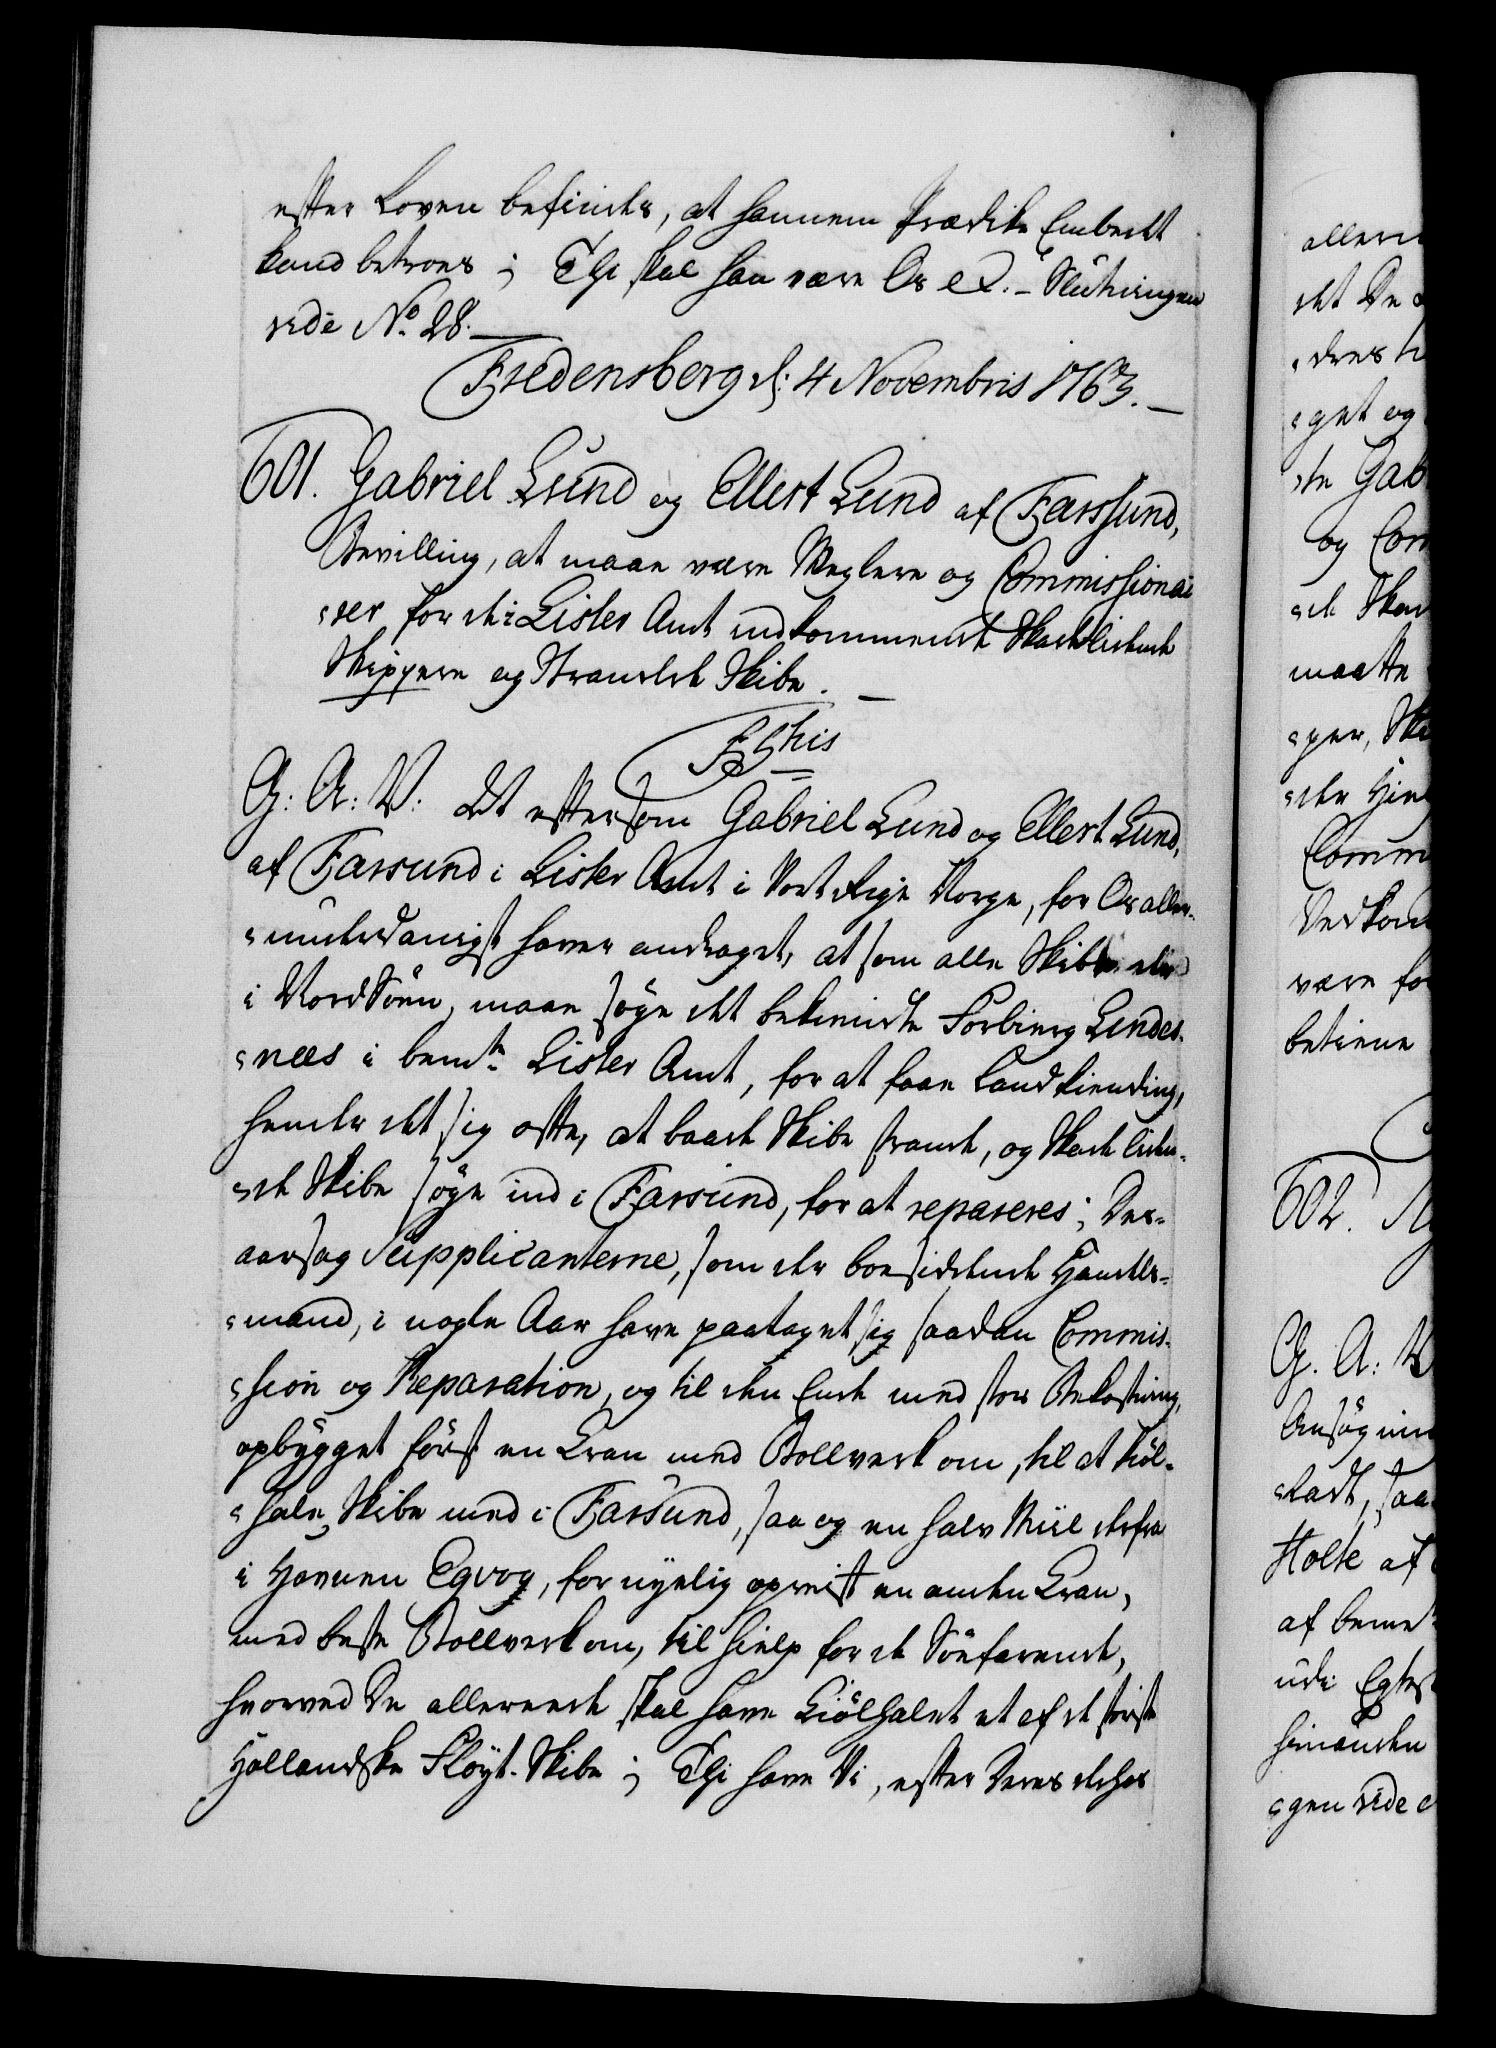 efter Loven befindes, at hannem Prædike Embedet
kand betroes; Thi skal han være Os &c. - Slutningen
vide No. 28. —
Fredensberg d: 4 Novembris 1763. —
601. Gabriel Lund og Ellert Lund af Farssund,
Bevilling, at maae være Meglere og Commissionai-
rer for de i Lister Amt indkommende Skadelidende
Skippere og Strandede Skibe. —
F5this
G: A: V: At eftersom Gabriel Lund og Ellert Lund,
af Farsund i Lister Amt i Vort Rige Norge, for Os aller-
underdanigst haver andraget, at som alle Skibe der
i Nordsöen, maae söge det bekiendte Forbierg Lindes-
næs i bemte Lister Amt, for at faae Landkiending,
hender det sig ofte, at baade Skibe strande, og Skade liden-
de Skibe söge ind i Farsund, for at repareres; Der-
aarsag Supplicanterne, som der boesiddende Handels-
mænd, i nogle Aar have paataget sig saadan Commis-
sion og Reparation, og til den Ende med stor Bekostning,
opbygget först en Cran med Bollverk om, til at kiöl-
hale Skibe med i Farsund, saa og en halv Miil derfra
i Havnen Egvog, fornyelig opreist en anden Cran,
med beste Bollverk om, til hielp for de Söefarende,
hvorved De allerede skal have Kiölhalet et af de störste
Hollandske Flöyt-Skibe; Thi have Vi, efter Deres derhos
allern
det De
deres
get og
te Gab
og Com
de Skad
maatte
per, Ski
der
Comm
Vedkom
være fo
betiene
602.
G. A: V
Ansögni
stadt, saa
Holte af
af bemel
udi
hinanden
gen vide